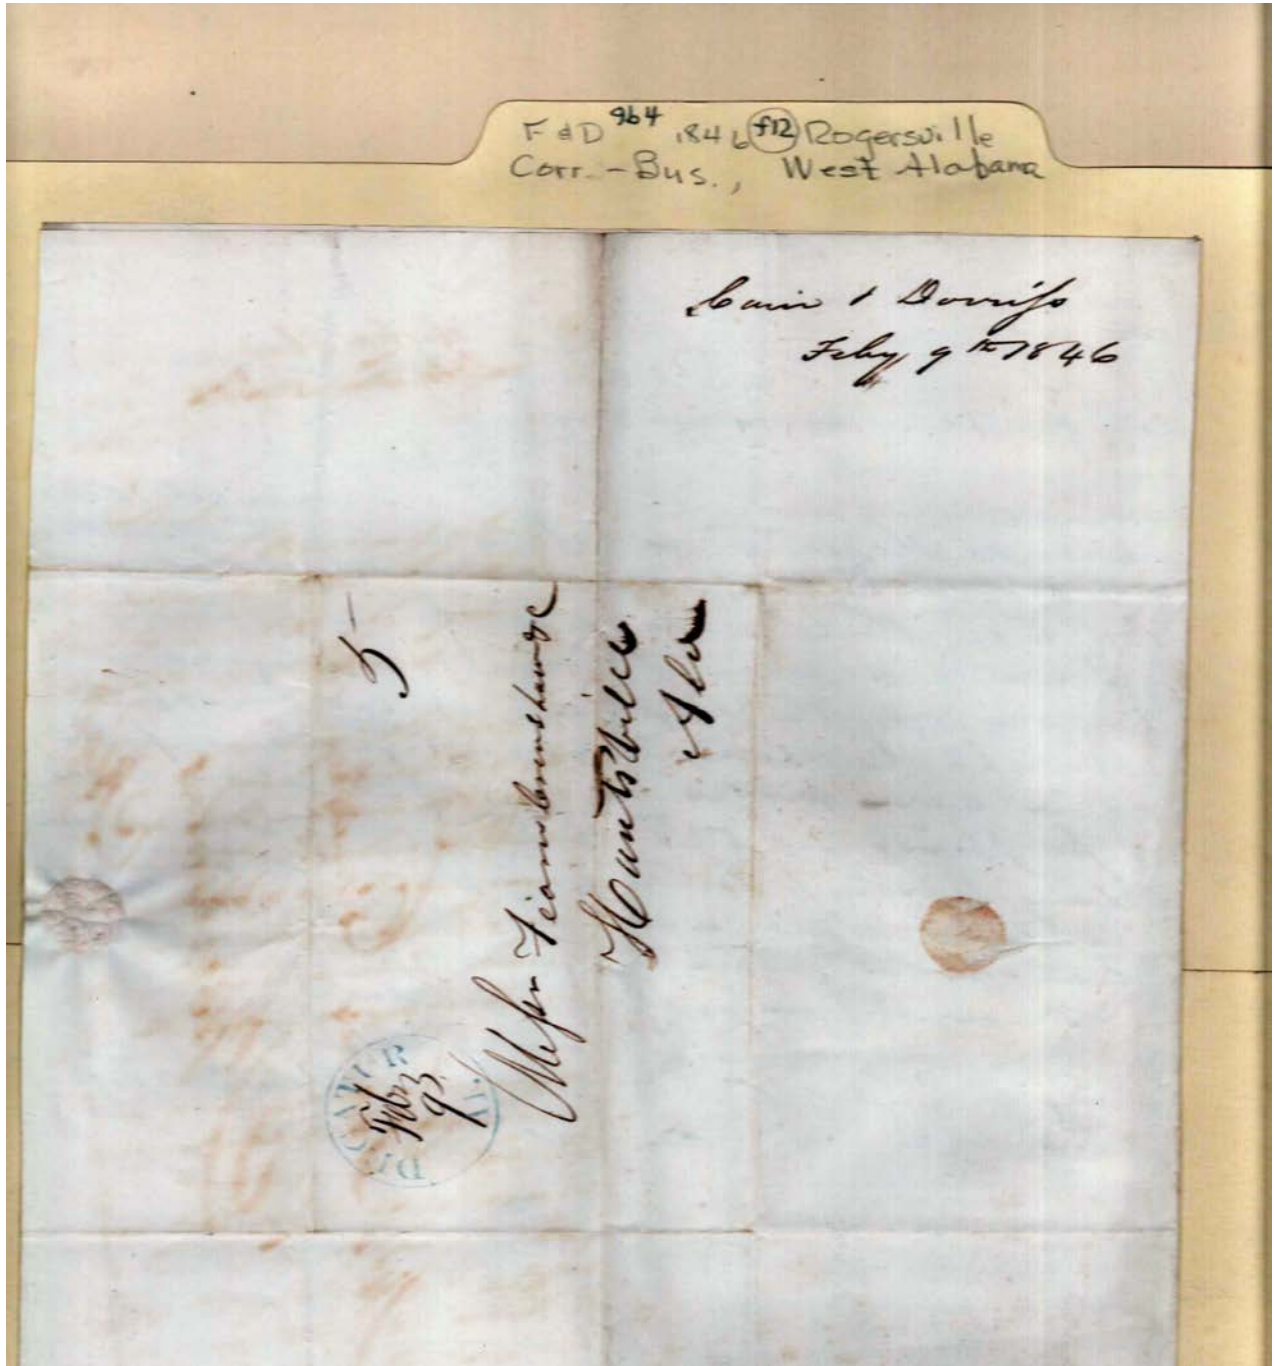 F & D 9b4 1846 f12 Rogersville
Corr. - Bus., West Alabama
Cain & Dorriss
Feby 9th 1846
5
Messrs Fearn Crenshaw & C
Huntsville
Ala
DECATUR
Feb
9